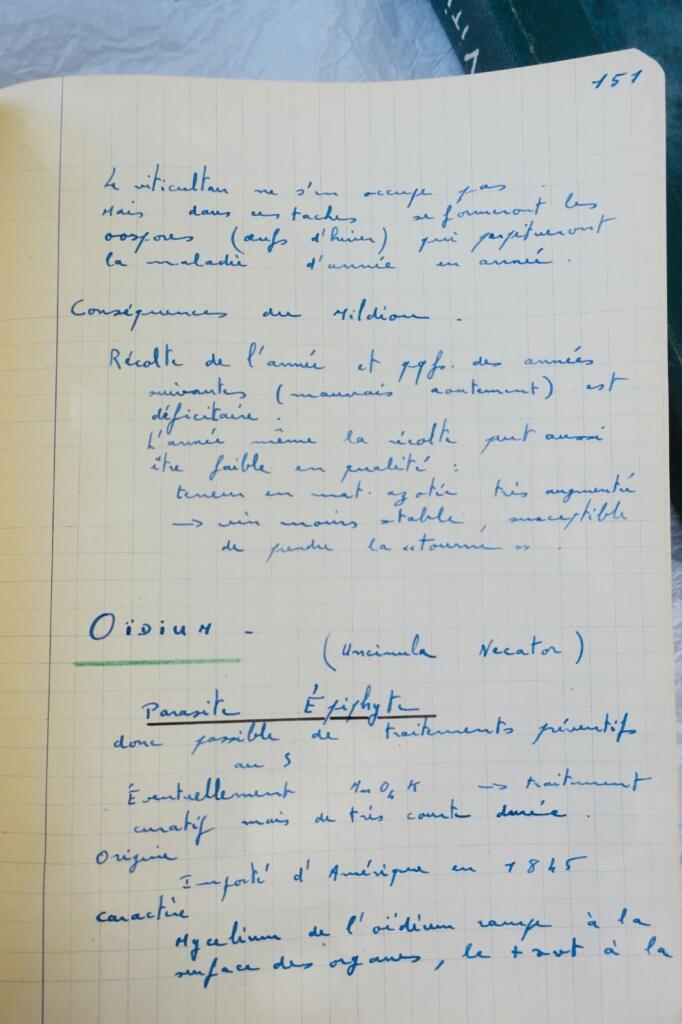 VITI
151
Le viticulteur ne s'en occupe pas.
Mais dans ces taches se formeront les
oospores (œufs d'hiver) qui perpétueront
la maladie d'année en année.
Conséquences du Mildiou.
Récolte de l'année et qqfs. des années
suivantes (mauvais aoutement) est
déficitaire.
L'année même la récolte peut aussi
être faible en qualité :
teneur en mat. azotée très augmentée
→ vin moins stable, susceptible
de prendre la "tourne".
OÏDIUM -
(Uncinula Necator)
Parasite Épiphyte
donc possible de traitements préventifs
au S
Éventuellement MnO4K → traitement
curatif mais de très courte durée.
Origine
Importé d'Amérique en 1845
Caractère
Mycelium de l'oïdium rampe à la
surface des organes, le + svt à la